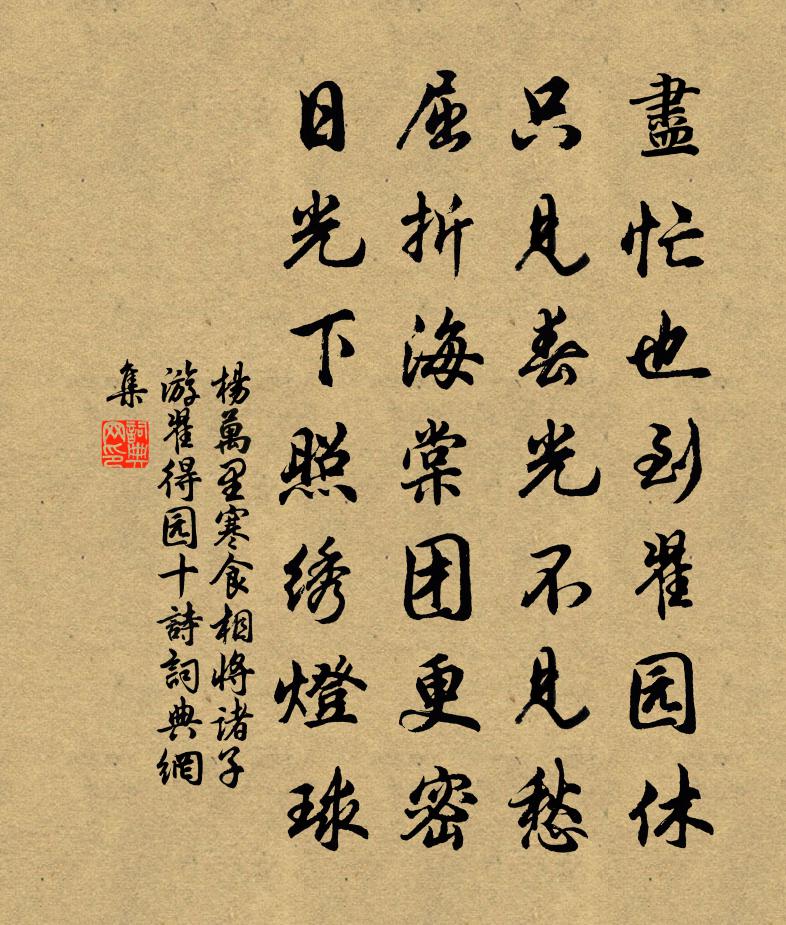 盡忙也到翟园休
只見春光不見愁
屈折海棠团更密
日光下照绣燈球
楊萬里寒食相將诸子
游翟得园十詩詞典網
集
詞典
网印